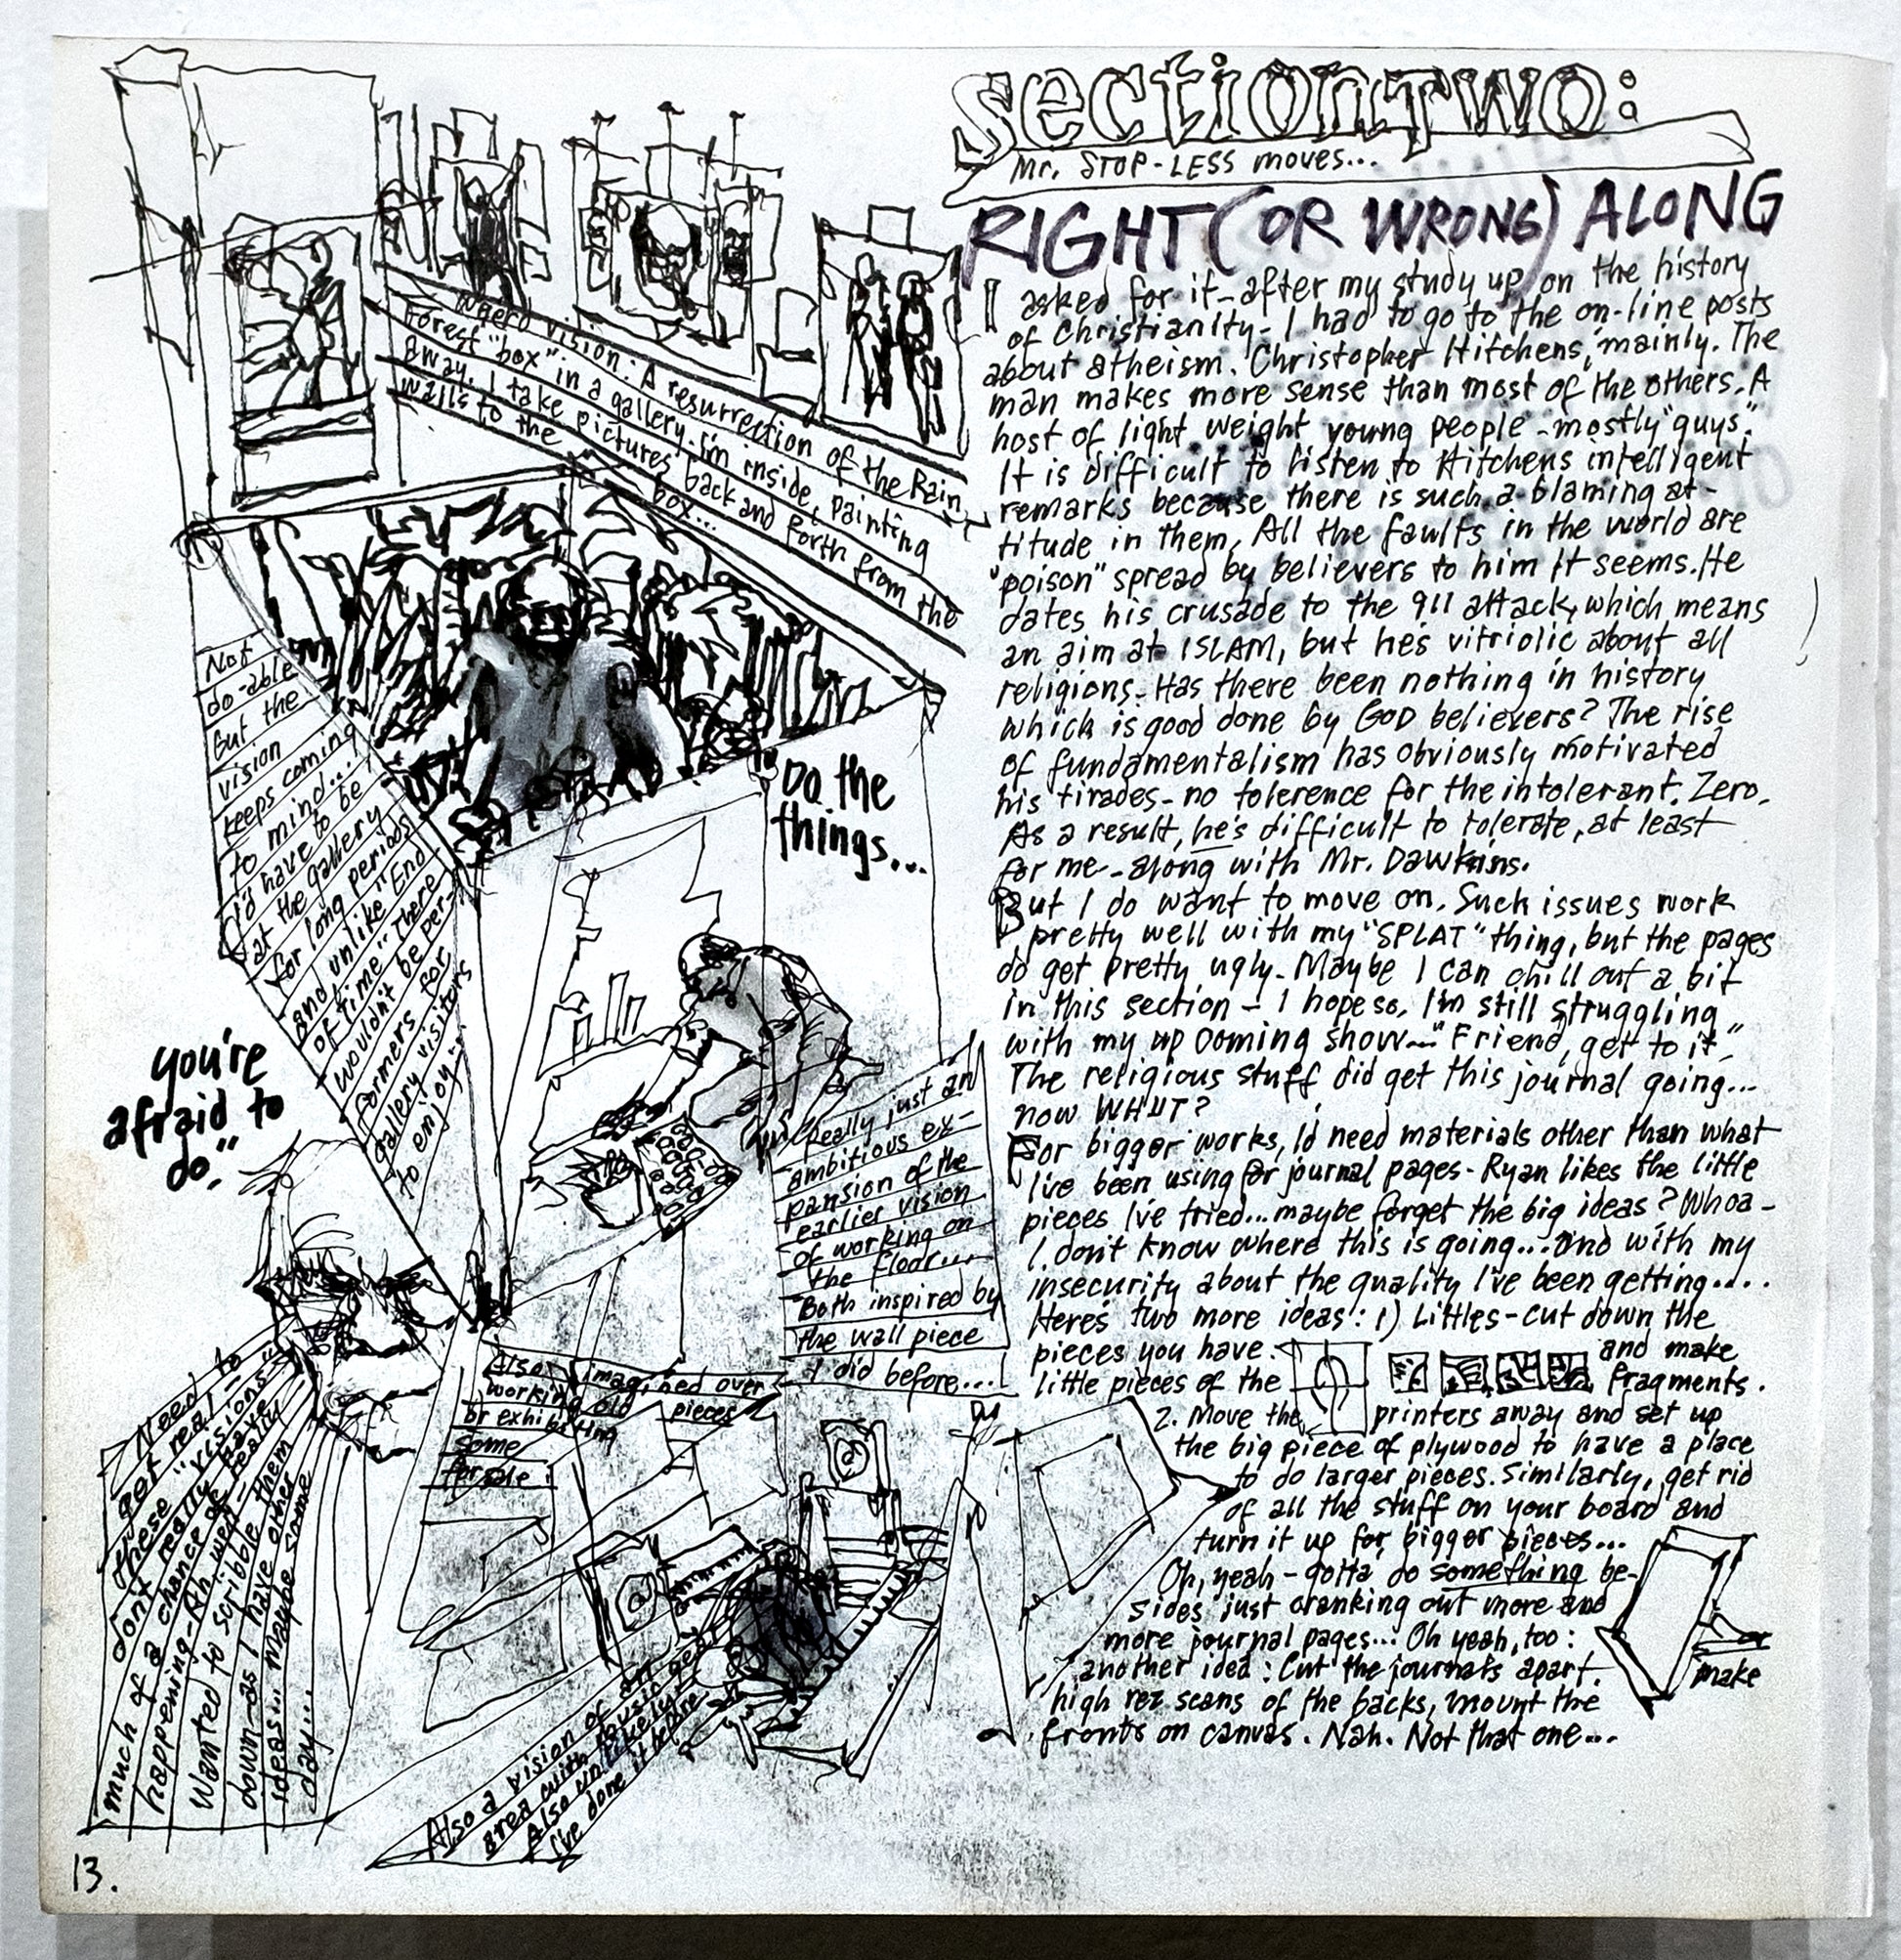 section Two:
Mr. STOP-LESS moves...
RIGHT (OR WRONG) ALONG
I asked for it - after my study up on the history
of Christianity - I had to go to the on-line posts
about atheism. Christopher Hitchens, mainly. The
man makes more sense than most of the others. A
host of light weight young people - mostly "guys".
It is difficult to listen to Hitchens intelligent
remarks because there is such a blaming at-
titude in them. All the faults in the world are
"poison" spread by believers to him it seems. He
dates his crusade to the 911 attack, which means
an aim at ISLAM, but he's vitriolic about all
religions. Has there been nothing in history
which is good done by GOD believers? The rise
of fundamentalism has obviously motivated
his tirades - no tolerence for the intolerant. Zero.
As a result, he's difficult to tolerate, at least
for me - along with Mr. Dawkins.
But I do want to move on. Such issues work
pretty well with my "SPLAT" thing, but the pages
do get pretty ugly. Maybe I can chill out a bit
in this section - I hope so. I'm still struggling
with my up coming show - "Friend, get to it"
The religious stuff did get this journal going...
now WHUT?
For bigger works, I'd need materials other than what
I've been using for journal pages - Ryan likes the little
pieces I've tried... maybe forget the big ideas? Whoa -
I don't know where this is going... and with my
insecurity about the quality I've been getting....
Here's two more ideas: 1) Littles - cut down the
pieces you have. and make
little pieces of the fragments.
2. Move the printers away and set up
the big piece of plywood to have a place
to do larger pieces. Similarly, get rid
of all the stuff on your board and
turn it up for bigger pieces...
Oh, yeah - gotta do something be-
sides just cranking out more and
more journal pages... Oh yeah, too:
another idea: Cut the journals apart.
make
high rez scans of the backs, mount the
fronts on canvas. Nah. Not that one...
weerd vision: A resurrection of the Rain
Forest "box" in a gallery. I'm inside, painting
away. I take pictures back and forth from the
walls to the box...
Not
do-able
but the
vision
keeps coming
to mind...
I'd have to be
at the gallery
for long periods
and, unlike "End
of time" there
wouldn't be per-
formers for
gallery visitors
to enjoy..
Do the
things...
you're
afraid to
do."
Really just an
ambitious ex-
pansion of the
earlier vision
of working on
the floor...
Both inspired by
the wall piece
I did before...
Also imagined over
working old pieces
or exhibiting
some
for sale
Need to
get real -
these "visions"
don't really have
much of a chance of really
happening - Ah well -
Wanted to scribble them
down - as I have other
ideas... maybe some
day...
Also a vision of an
area with
Also unlikely
I've done it before
13.